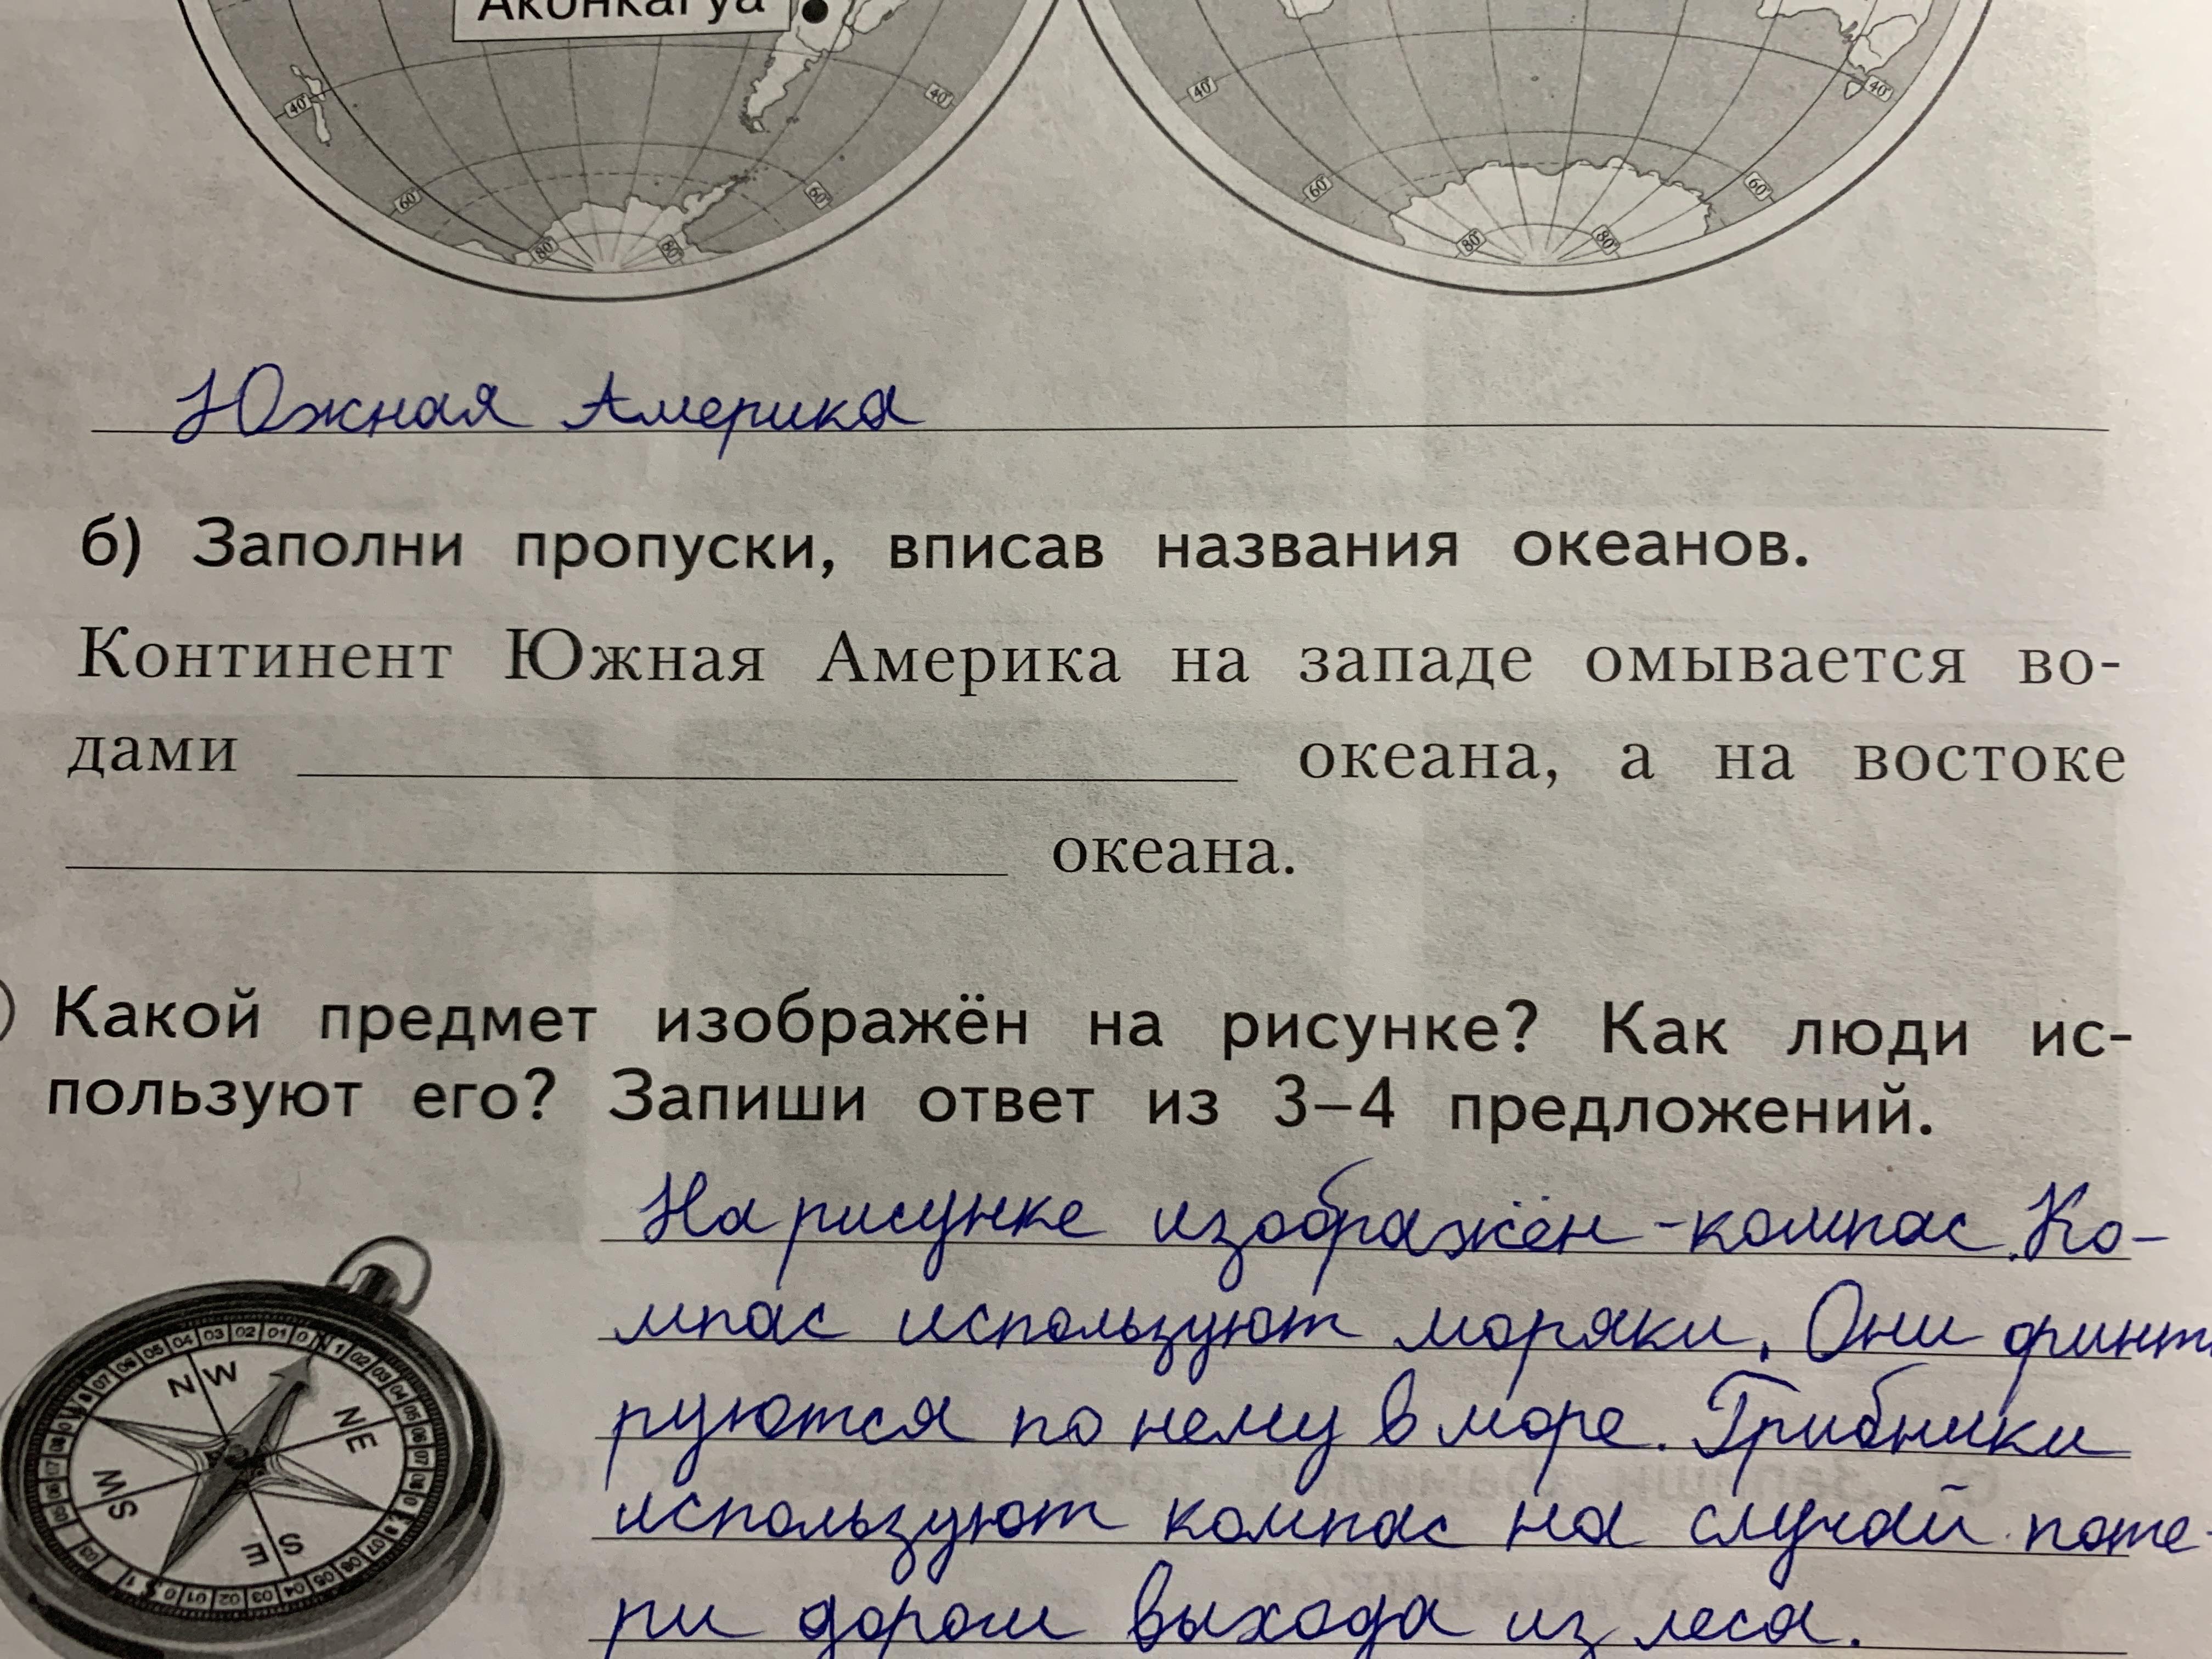 Аконкагуа
40° 40° 40° 40°
60° 60° 60° 60°
80° 80° 80° 80°
Южная Америка
б) Заполни пропуски, вписав названия океанов.
Континент Южная Америка на западе омывается во-
дами океана, а на востоке
океана.
Какой предмет изображён на рисунке? Как люди ис-
пользуют его? Запиши ответ из 3–4 предложений.
На рисунке изображён -компас. Ко-
мпас используют моряки. Они
руются по нему в море. Грибники
используют компас на случай поте-
ри дороги выхода из леса.
NW
NE
SW
SE